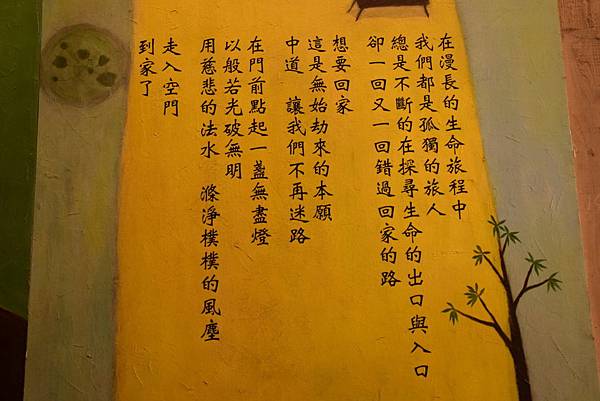 在漫長的生命旅程中
我們都是孤獨的旅人
總是不斷的在探尋生命的出口與入口
卻一回又一回錯過回家的路
想要回家
這是無始劫來的本願
中道 讓我們不再迷路
在門前點起一盞無盡燈
以般若光破無明
用慈悲的法水 滌淨樸樸的風塵
走入空門
到家了